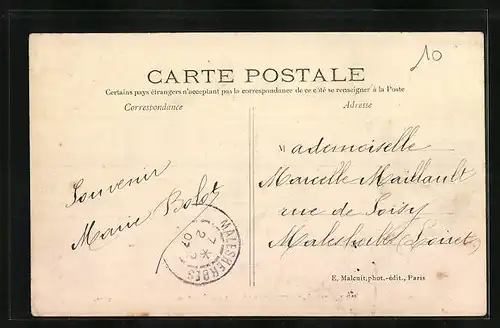 10
CARTE POSTALE
Certains pays étrangers n'acceptant pas la correspondance de ce côté se renseigner à la Poste
Correspondance
Adresse
Mademoiselle
Marcelle Maillault
rue de Loisy
Malesherbes (Loiret)
Souvenir
Marie Bolot
MALESHERBES
E. Malcuit, phot.-édit., Paris